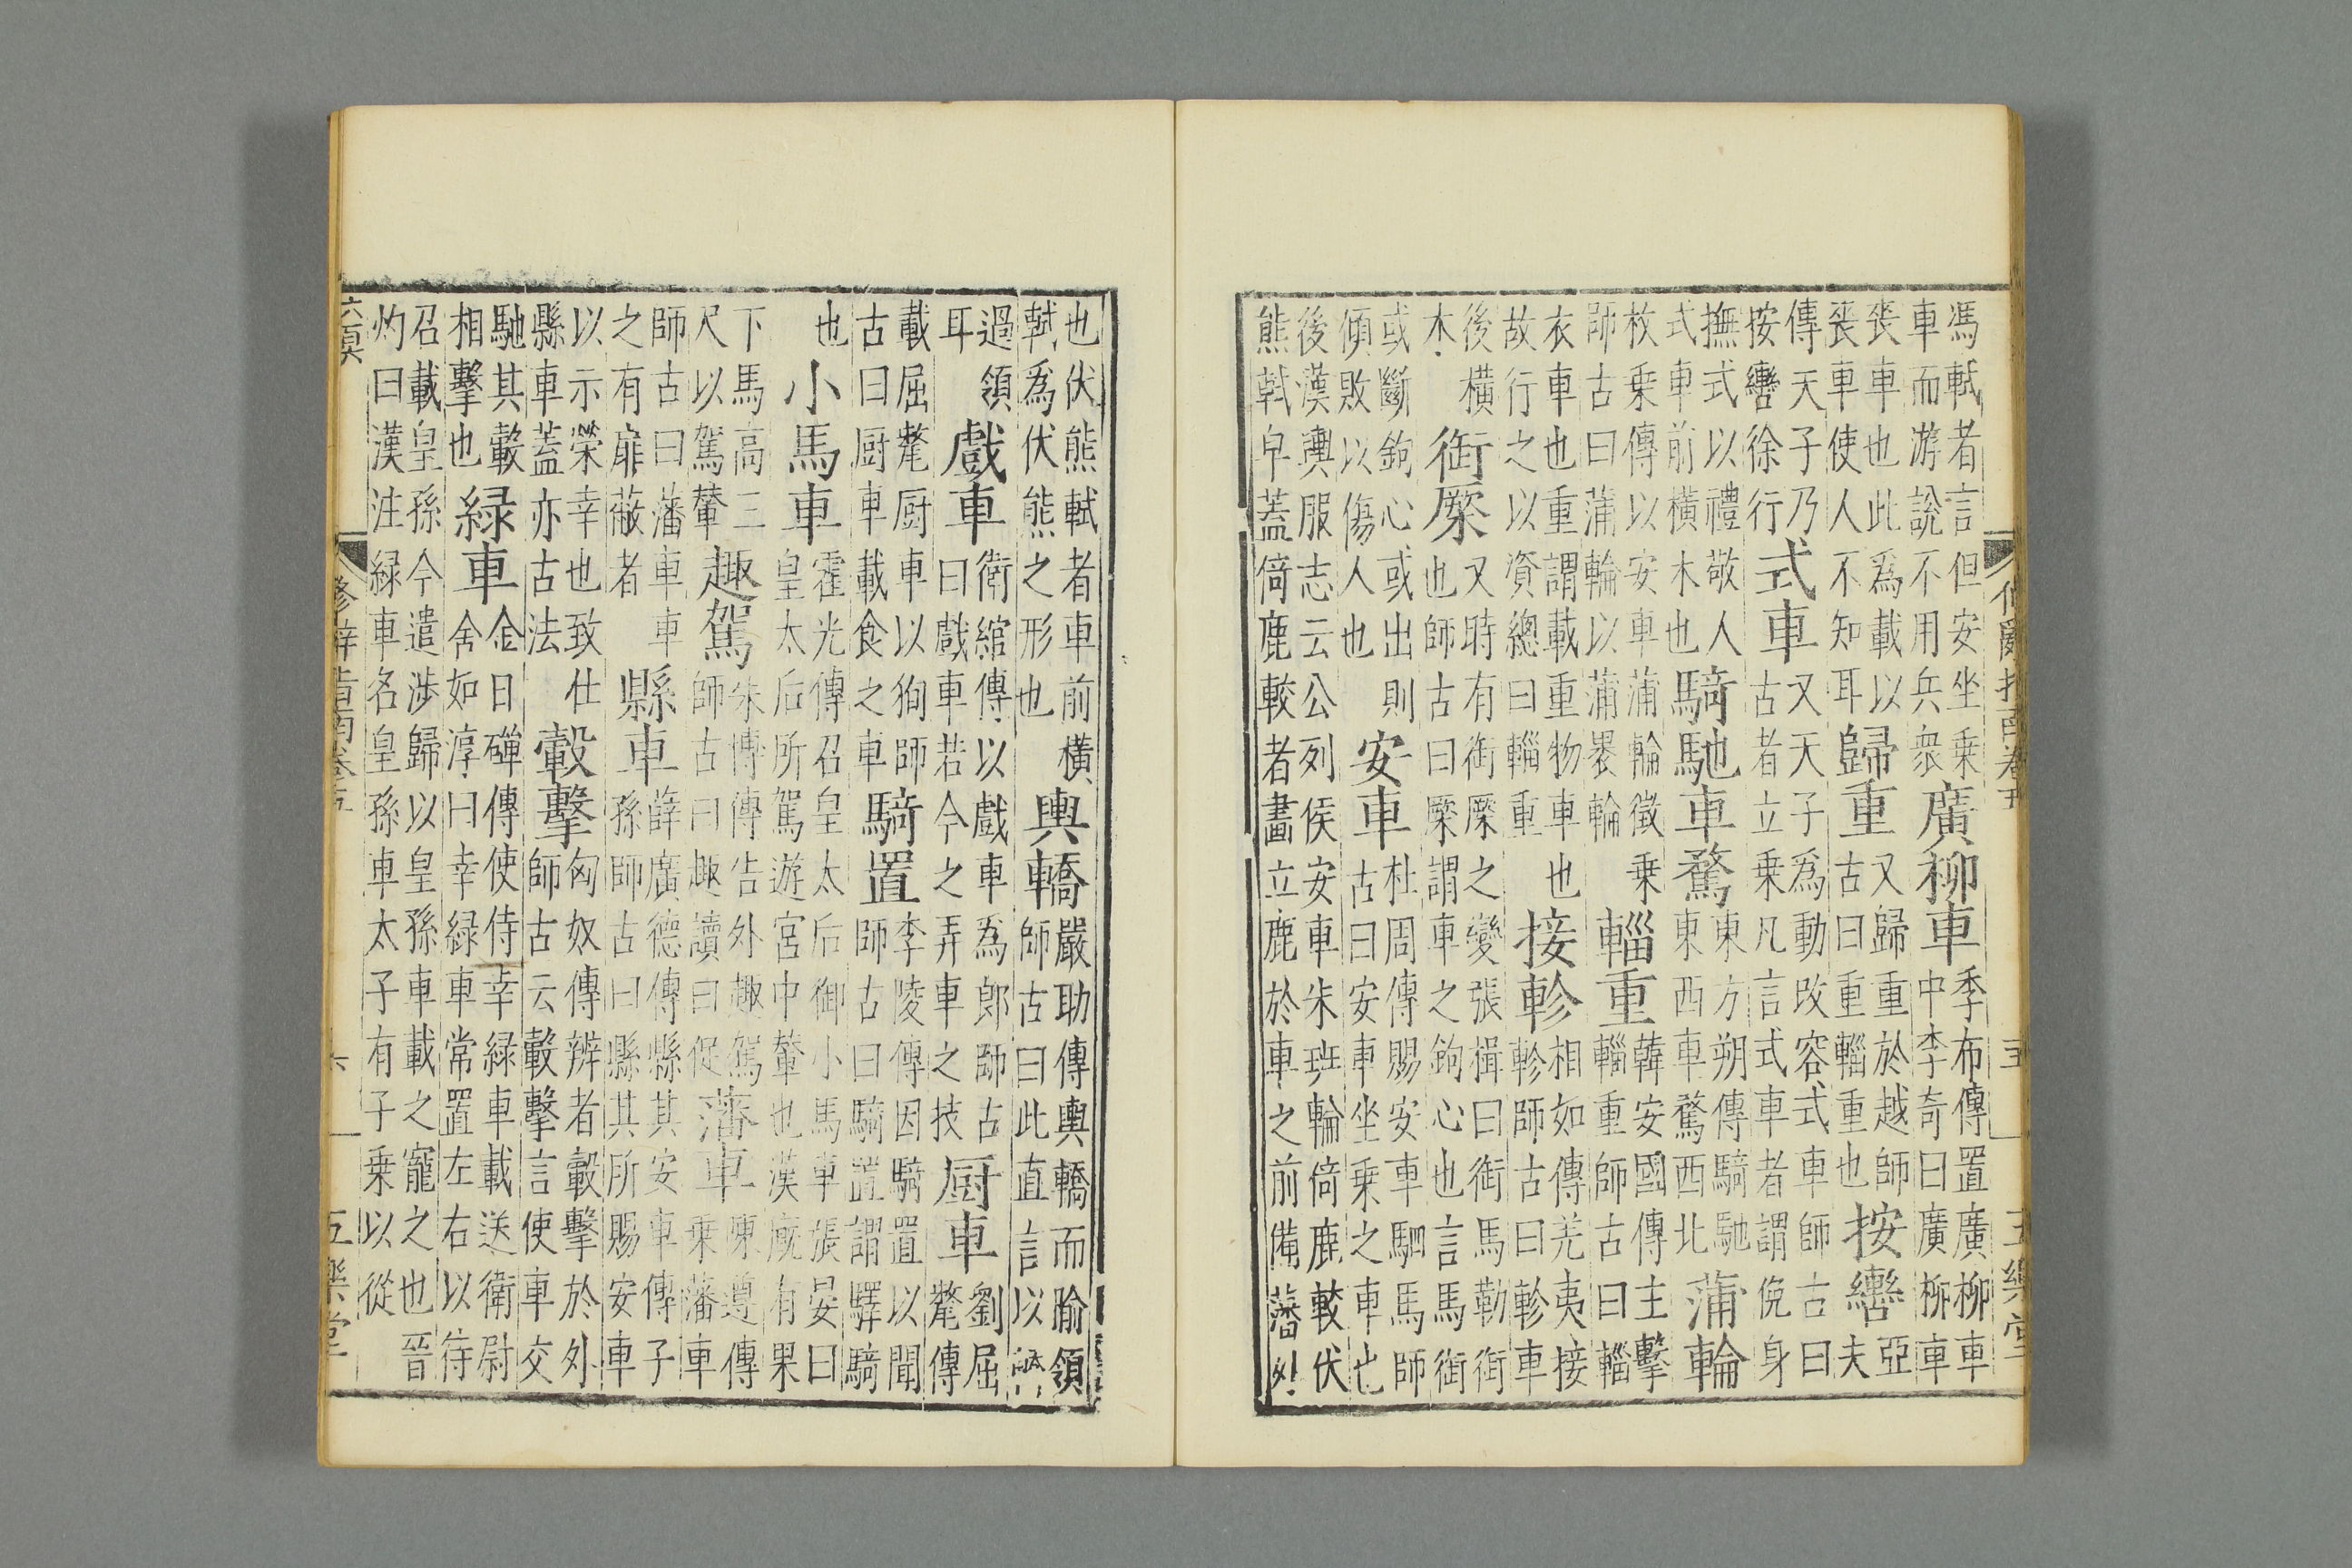 修辭指南卷五 五 五樂堂
馮軾者言但安坐乗
車而游說不用兵衆
廣柳車
季布傳置廣柳車
中李奇曰廣柳車
喪車也此爲載以
喪車使人不知耳
歸重
又歸重於越師
古曰重輜重也
按轡
亞
夫
傳天子乃
按轡徐行
式車
又天子爲動改容式車師古曰
古者立乗凡言式車者謂俛身
撫式以禮敬人
式車前橫木也
騎馳車騖
東方朔傳騎馳
東西車騖西北
蒲輪
枚乗傳以安車蒲輪徵乗
師古曰蒲輪以蒲褁輪
輜重
韓安國傳主擊
輜重師古曰輜
衣車也重謂載重物車也
故行之以資總曰輜重
接軫
相如傳羌夷接
軫師古曰軫車
後橫
木
銜橜
又時有銜橜之變張揖曰銜馬勒銜
也師古曰橜謂車之鉤心也言馬銜
或斷鉤心或出則
傾敗以傷人也
安車
杜周傳賜安車駟馬師
古曰安車坐乗之車也
後漢輿服志云公列侯安車朱班輪倚鹿較伏
熊軾皁蓋倚鹿較者畫立鹿於車之前備藩外
也伏熊軾者車前橫
軾爲伏熊之形也
輿轎
嚴助傳輿轎而隃領
師古曰此直言以
過領
耳
戲車
衛綰傳以戲車爲郎師古
曰戲車若今之弄車之技
厨車
劉屈
氂傳
載屈氂厨車以狥師
古曰厨車載食之車
騎置
李陵傳因騎置以聞
師古曰騎置謂驛騎
也
小馬車
霍光傳召皇太后御小馬車張晏曰
皇太后所駕遊宮中輦也漢廐有果
下馬高三
尺以駕輦
趣駕
朱博傳告外趣駕
師古曰趣讀曰促
藩車
陳遵傳
乗藩車
師古曰藩車車
之有屏蔽者
縣車
薛廣德傳縣其安車傳子
孫師古曰縣其所賜安車
以示榮幸也致仕
縣車蓋亦古法
轂擊
匈奴傳辨者轂擊於外
師古云轂擊言使車交
馳其轂
相擊也
緑車
金日磾傳使侍幸緑車載送衛尉
舍如淳曰幸緑車常置左右以待
召載皇孫今遣涉歸以皇孫車載之寵之也晉
灼曰漢注緑車名皇孫車太子有子乗以從
修辭指南卷五 六 五樂堂